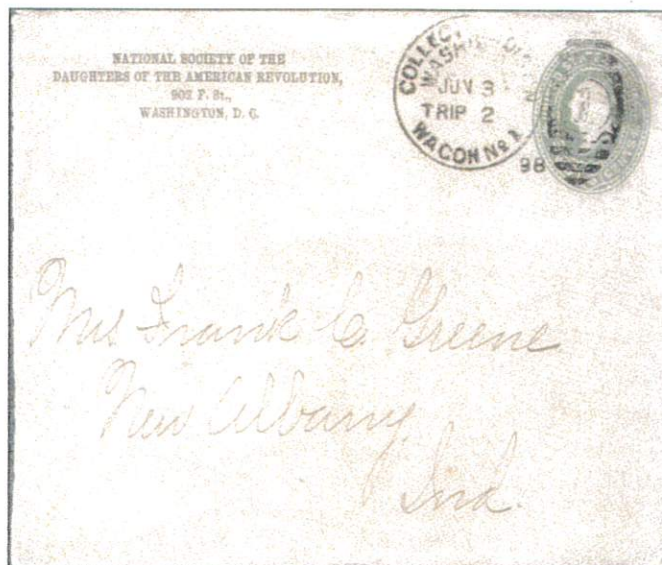 NATIONAL SOCIETY OF THE
DAUGHTERS OF THE AMERICAN REVOLUTION,
902 F. St.,
WASHINGTON, D. C.
COLLECT
WASHI
JUN 3
TRIP 2
WAGON No 1
98
Mrs Frank C. Greene
New Albany
Ind.